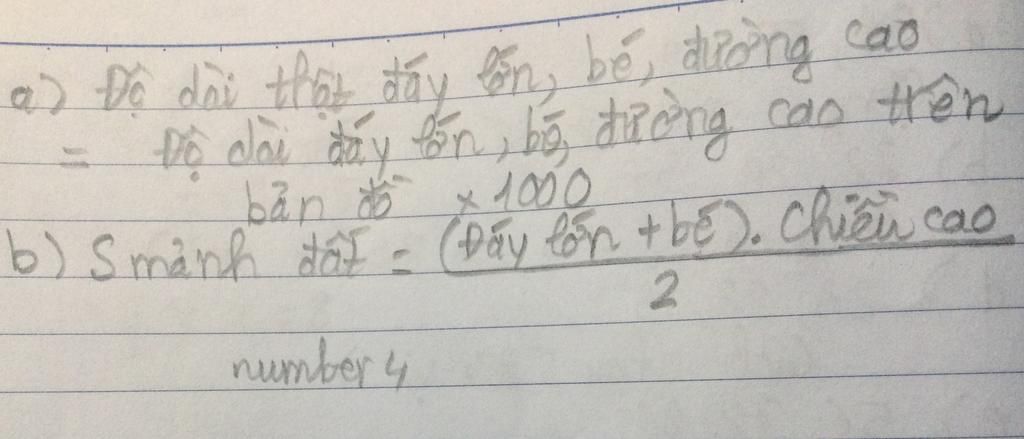 a) Độ dài thật đáy lớn, bé, đường cao
= Độ dài đáy lớn, bé, đường cao trên
bản đồ × 1000
b) S mảnh đất = (Đáy lớn + bé). Chiều cao
2
number 4